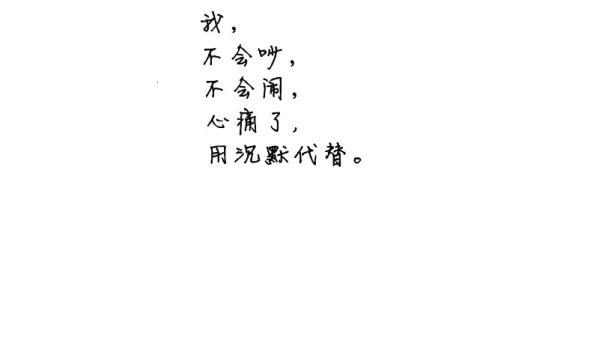 我，
不会吵，
不会闹，
心痛了，
用沉默代替。